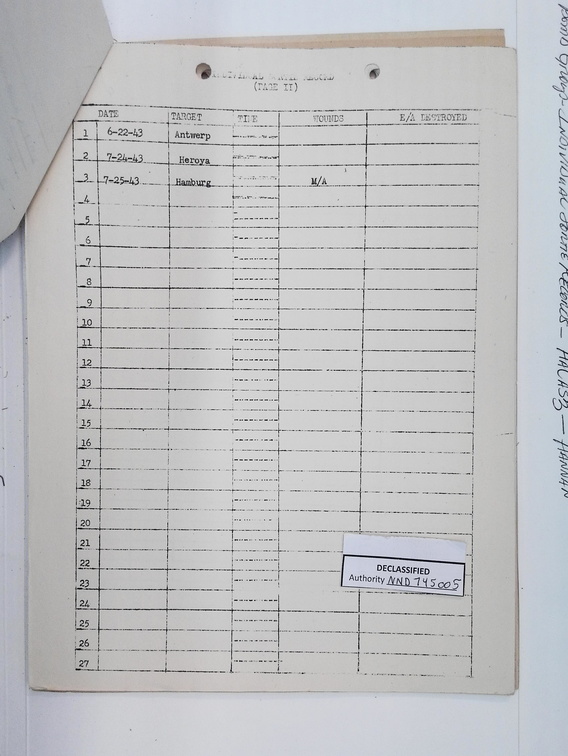 INDIVIDUAL SORTIE RECORD
(PAGE II)
DATE TARGET TIME WOUNDS E/A DESTROYED
1 6-22-43 Antwerp
2 7-24-43 Heroya
3 7-25-43 Hamburg M/A
4
5
6
7
8
9
10
11
12
13
14
15
16
17
18
19
20
21
22
23
24
25
26
27
DECLASSIFIED
Authority NND 745005
Group - Individual Sortie Records - - HANNAN